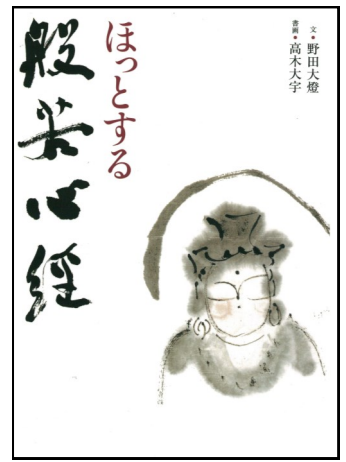 文・野田大燈
書画・高木大宇
ほっとする
般若心経